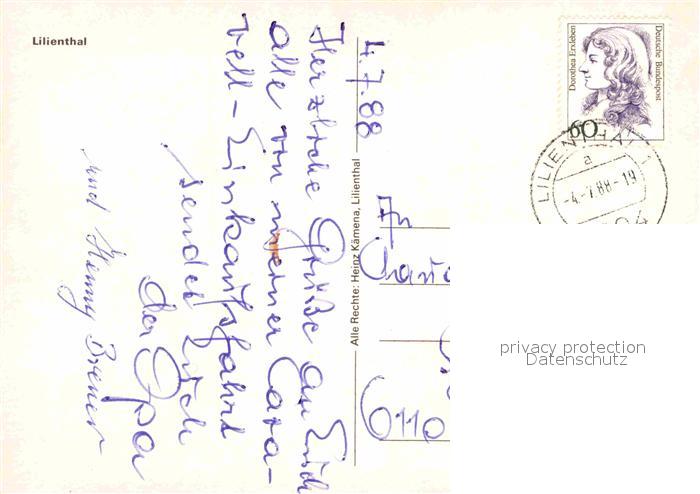 Lilienthal
4.7.88
Herzliche Grüße an Euch
alle von meiner Cara-
vell-Einkaufsfahrt
sendet Euch
der Opa
und Henny Brener
Alle Rechte: Heinz Kämena, Lilienthal
An
6110
Dorothea Erxleben
Deutsche Bundespost
60
LILIENTHAL 1
a
-4.-7.88-19
privacy protection
Datenschutz